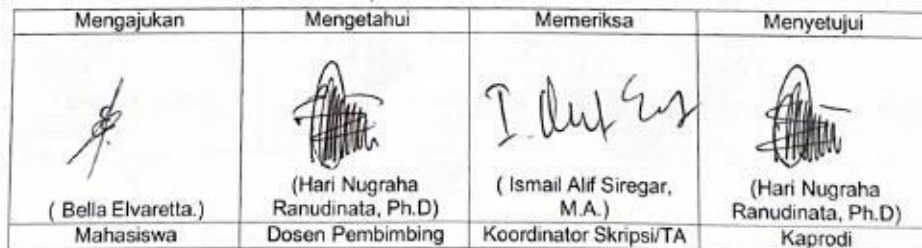 Mengajukan
Mengetahui
Memeriksa
Menyetujui
( Bella Elvaretta.)
(Hari Nugraha
Ranudinata, Ph.D)
( Ismail Alif Siregar,
M.A.)
(Hari Nugraha
Ranudinata, Ph.D)
Mahasiswa
Dosen Pembimbing
Koordinator Skripsi/TA
Kaprodi